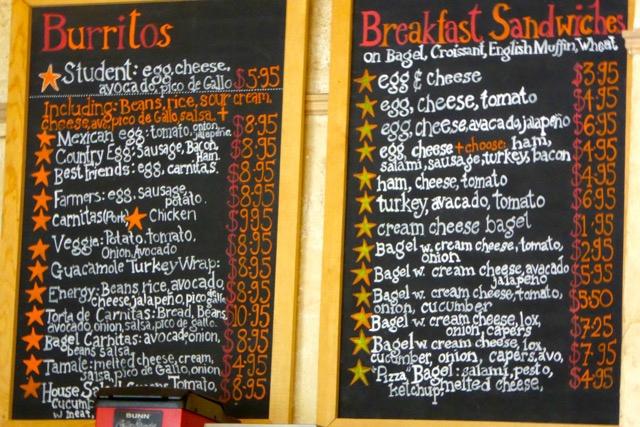 Burritos
Student: egg, cheese,
avocado, pico de Gallo $5.95
Including: Beans, rice, sour cream,
cheese, avo, pico de Gallo, salsa, +
Mexican egg: tomato, onion, jalapeño $8.95
Country Egg: Sausage, Bacon, Ham. $8.95
Best Friends: egg, carnitas. $8.95
Farmers: egg, sausage, potato. $8.95
carnitas (Pork) Chicken $9.95
Veggie: Potato, tomato, $8.95
Onion, Avocado
Guacamole Turkey Wrap: $8.95
Energy: Beans, rice, avocado, $8.95
cheese, jalapeño, pico de gallo
Torta de Carnitas: Bread, Beans, $10.95
avocado, onion, salsa, pico de gallo.
Bagel Carnitas: avocado, onion, $8.95
beans, salsa
Tamale: melted cheese, cream, $4.95
salsa, pico de Gallo, onion
House Salad: Tomato, $8.95
cucum
w meat,
BUNN
Breakfast Sandwiches
on Bagel, Croissant, English Muffin, Wheat,
egg & cheese $3.95
egg, cheese, tomato $4.95
egg, cheese, avacado, jalapeño $6.95
egg, cheese + choose: ham, $4.95
salami, sausage, turkey, bacon
ham, cheese, tomato $4.95
turkey, avocado, tomato $6.95
cream cheese bagel $1.95
Bagel w. cream cheese, tomato, $2.95
onion
Bagel w. cream cheese, avocado $5.95
jalapeño
Bagel w. cream cheese, tomato, $5.50
onion, cucumber
Bagel w. cream cheese, lox, $7.25
onion, capers
Bagel w. cream cheese, lox, $7.95
cucumber, onion, capers, avo,
"Pizza" Bagel: salami, pesto, $4.95
ketchup, melted cheese,